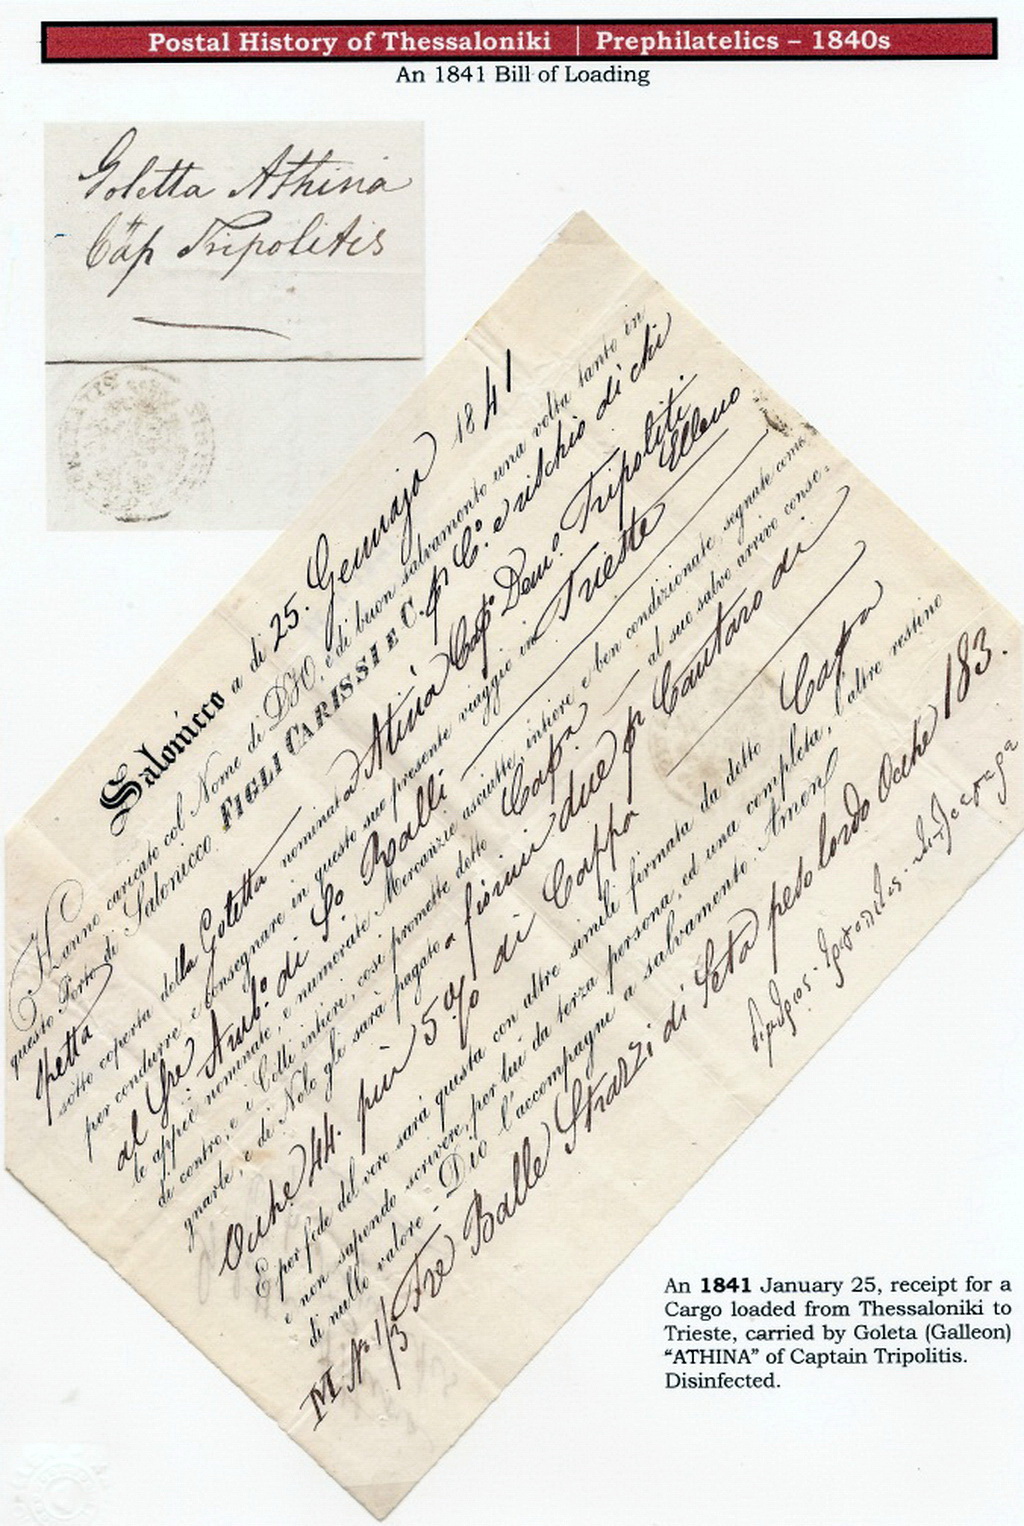 Postal History of Thessaloniki | Prephilatelics – 1840s
An 1841 Bill of Loading
Goletta Athina
Cap Tripolitis
Salonicco a di 25. Gennajo 1841
Hanno caricato col Nome di DIO, e di buon salvamento una volta tanto in
questo Porto di Salonicco FIGLI CARISSI E C. p C.º e rischio di chi
spetta
sotto coperta della Goletta nominata Atina Cap.º Dem.º Tripoliti
Elleno
per condurre, e consegnare in questo suo presente viaggio in Trieste
al Sre Amb.º di S.º Ralli
le appiè nominate, e numerate Mercanzie asciutte, intiere, e ben condizionate, segnate come
di contro, e i Colli intieri, così promette detto Capa al suo salvo arrivo conse-
gnarle, e di Nolo gle sarà pagato a fiorini due p Cantaro di
Ocche 44. più 5 % di Cappa
E per fede del vero sarà questa con altre simili firmata da detto Capa
e non sapendo scrivere, per lui da terza persona, ed una completa, l'altre restino
di nullo valore - Dio l'accompagne a salvamento. Amen
M Nº 1/3 Tre Balle Strazzi di Seta peso lordo Ocche 183.
An 1841 January 25, receipt for a
Cargo loaded from Thessaloniki to
Trieste, carried by Goleta (Galleon)
“ATHINA” of Captain Tripolitis.
Disinfected.